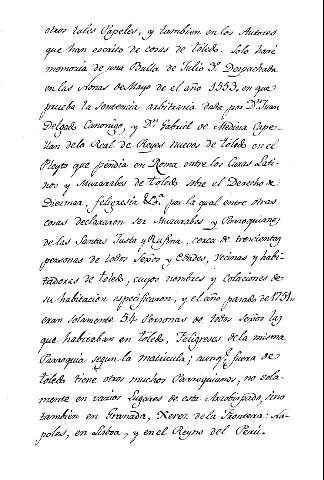 otros tales Papeles, y tambien en los Autores
que han escrito de cosas de toledo. Solo haré
memoria de una Bulla de Julio 3º. Despachada
en las Nonas de Mayo de el año 1553, en que
prueba la Sentencia arbitraria dada por Dⁿ. Juan
Delgado Canonigo, y Dⁿ. Gabriel de Medina Cape-
llan de la Real de Reyes nuevos de toledo en el
Pleyto que pendia en Roma entre los Curas Lati-
nos y Muzarabes de toledo sobre el Derecho de
Diezmar, feligresia &ª. por la qual entre otras
cosas declararon ser Muzarabes y Parroquianos
de las Santas Justa y Rufina, cerca de trecientas
personas de todos Sexos y Edades, vecinas y habi-
tadores de toledo, cuyos nombres y colaciones de
su habitacion especificaron, y el año pasado de 1751
eran solamente 54 Personas de todos Sexos las
que habitaban en toledo, Feligreses de la misma
Parroquia segun la matricula; aunq.e fuera de
toledo tiene otros muchos Parroquianos, no sola-
mente en varios Lugares de este Arzobispado, sino
tambien en Granada, Xerez de la Frontera: Na-
poles, en Lisboa, y en el Reyno del Perú.